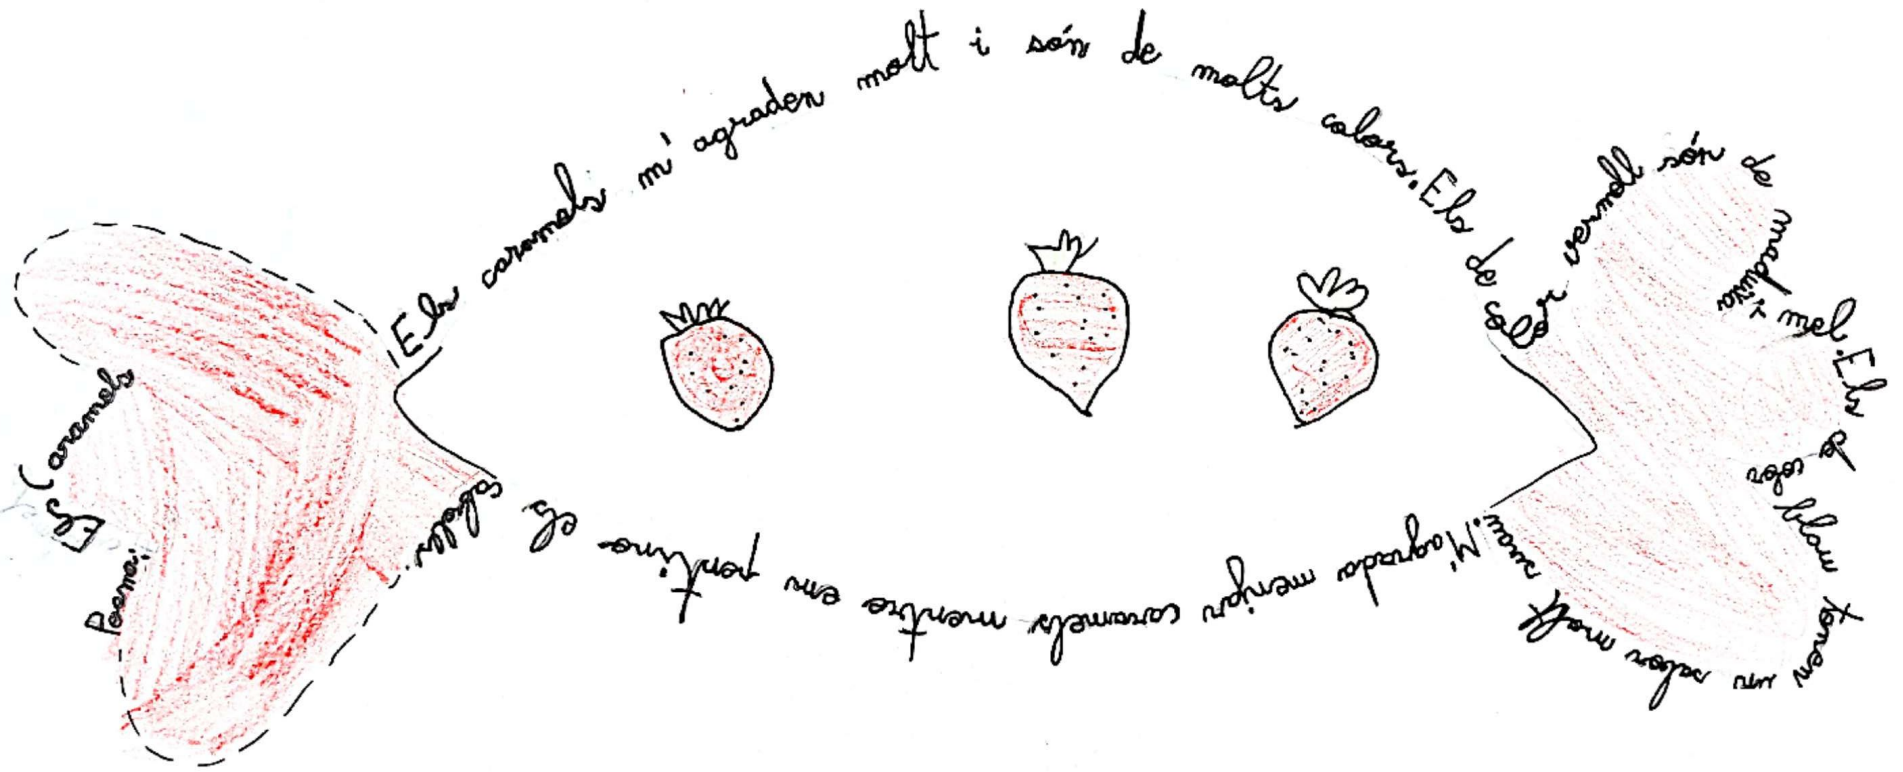 Poema: Els Caramels
Els caramels m'agraden molt i són de molts colors. Els de color vermell són de maduixa i mel. Els de color blau tenen un sabor molt suau. M'agrada menjar caramels mentre em pentino els cabells.